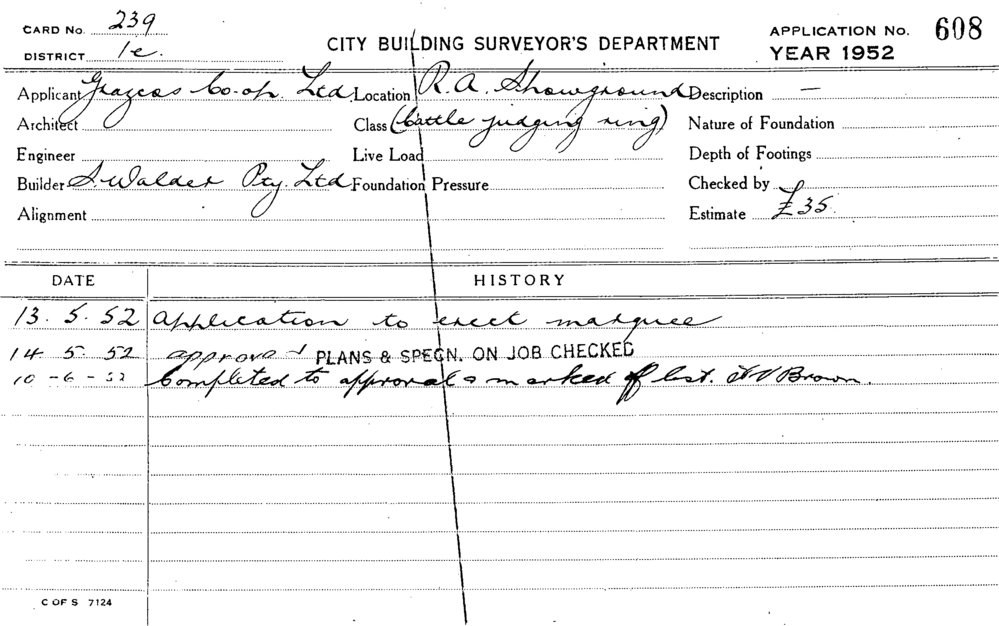 CARD No. 239
DISTRICT 1e.
CITY BUILDING SURVEYOR'S DEPARTMENT
APPLICATION No. 608
YEAR 1952
Applicant Grazcos Co-op. Ltd. Location R.A. Showground Description —
Architect Class (Cattle judging ring) Nature of Foundation
Engineer Live Load Depth of Footings
Builder S. Walder Pty. Ltd Foundation Pressure Checked by
Alignment Estimate £35.
DATE HISTORY
13. 5. 52 Application to erect marquee
14 5 52 approval PLANS & SPECN. ON JOB CHECKED
10 - 6 - 52 Completed to approval & marked off list. Brown.
C OF S 7124